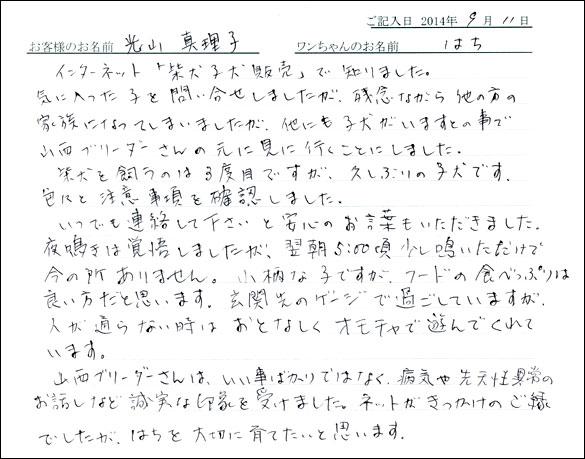 ご記入日 2014年 9月 11日
お客様のお名前 光山 真理子 ワンちゃんのお名前 はち
インターネット「柴犬子犬販売」で知りました。
気に入った子を問い合せしましたが、残念ながら他の方の
家族になってしまいましたが、他にも子犬がいますとの事で
山西ブリーダーさんの元に見に行くことにしました。
柴犬を飼うのは3度目ですが、久しぶりの子犬です。
色々と注意事項を確認しました。
いつでも連絡して下さいと安心のお言葉もいただきました。
夜鳴きは覚悟しましたが、翌朝5:00頃少し鳴いただけで
今の所ありません。小柄な子ですが、フードの食べっぷりは
良い方だと思います。玄関先のゲージで過ごしていますが、
人が通らない時はおとなしくオモチャで遊んでくれて
います。
山西ブリーダーさんは、いい事ばかりではなく、病気や先天性異常の
お話しなど誠実な印象を受けました。ネットがきっかけのご縁
でしたが、はちを大切に育てたいと思います。